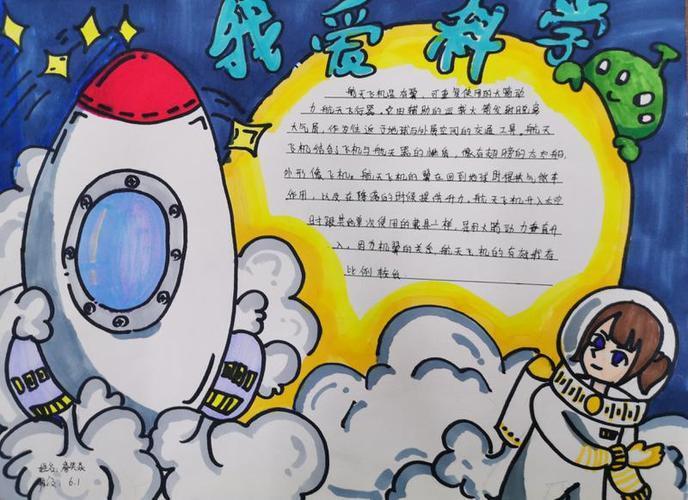 我爱科学
航天飞机是有翼、可重复使用的火箭动
力航天飞行器,它由辅助的运载火箭发射脱离
大气层,作为往返于地球与外层空间的交通工具,航天
飞机结合了飞机与航天器的性质,像有翅膀的太空船,
外形像飞机,航天飞机的翼在回到地球时提供空气
作用,以及在降落的时候提供升力,航天飞机升入太空
时跟其他单次使用的载具一样,是用火箭动力垂直升
入,因为机翼的关系,航天飞机的有效
比例较
姓名
6.1